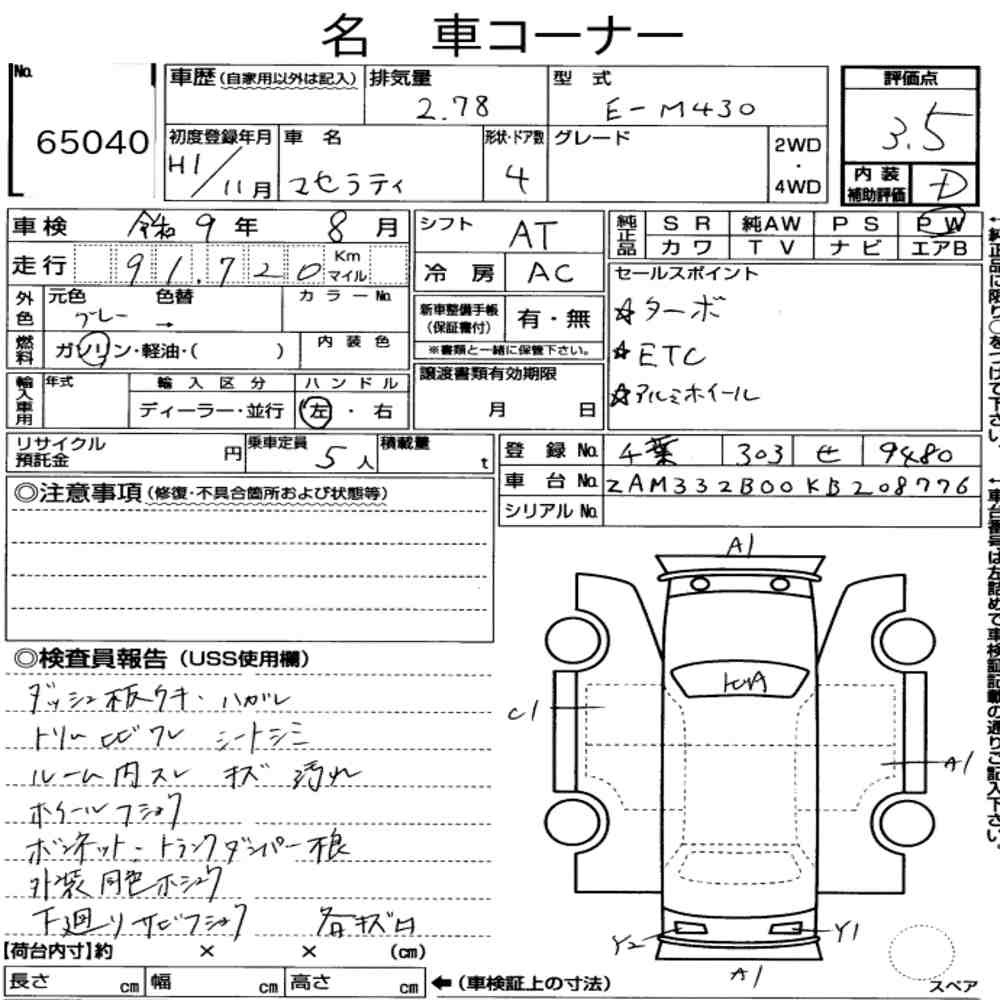 名 車コーナー
No. 65040
車歴(自家用以外は記入) 排気量 2.78 型式 E-M430
評価点 3.5
初度登録年月 H1/11月 車名 マセラティ 形状・ドア数 4 グレード 2WD・4WD
内装補助評価 D
車検 令和9年 8月
走行 91,720 Km マイル
外色 元色 グレー → 色替 カラーNo.
燃料 ガソリン・軽油・( ) 内装色
輸入車用 年式 輸入区分 ディーラー・並行 ハンドル 左・右
シフト AT
冷房 AC
新車整備手帳(保証書付) 有・無
※書類と一緒に保管下さい。
譲渡書類有効期限
月 日
純正品 SR 純AW PS PW
カワ TV ナビ エアB
セールスポイント
☆ターボ
☆ETC
☆アルミホイール
←純正品に限り○をつけて下さい。
リサイクル預託金 円 乗車定員 5人 積載量 t
登録No. 千葉 303 せ 9480
車台No. ZAM332B00KB208776
シリアルNo.
←車台番号は左詰めで車検証記載の通りご記入下さい。
◎注意事項(修復・不具合箇所および状態等)
◎検査員報告(USS使用欄)
ダッシュ板ウキ・ハガレ
トリムヒビワレ シートシミ
ルーム内スレ キズ 汚れ
ホイールフショク
ボンネット・トランクダンパー不良
外装同色ホシュウ
下廻りサビフショク 各キズ凹
A1
C1
A1
Y2
Y1
A1
スペア
【荷台内寸】約 × × (cm)
長さ cm 幅 cm 高さ cm ←(車検証上の寸法)